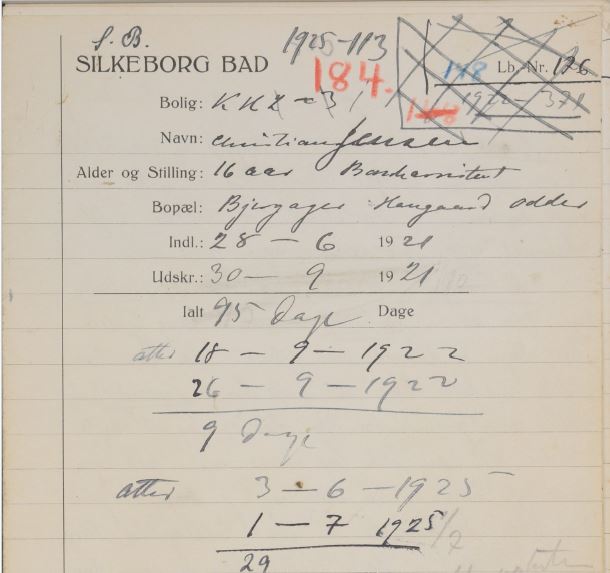 S. B.
1925-113
SILKEBORG BAD
184.
148 Lb.-Nr. 126
1922 - 371
Bolig: KKZ - 3
Navn: Christian Jensen
Alder og Stilling: 16 aar
Bopæl: Bjergager Haugaard Odder
Indl.: 28 - 6 1921
Udskr.: 30 - 9 1921
Ialt 95 Dage Dage
atter 18 - 9 - 1922
26 - 9 - 1922
9 Dage
atter 3 - 6 - 1925
1 - 7 1925
29